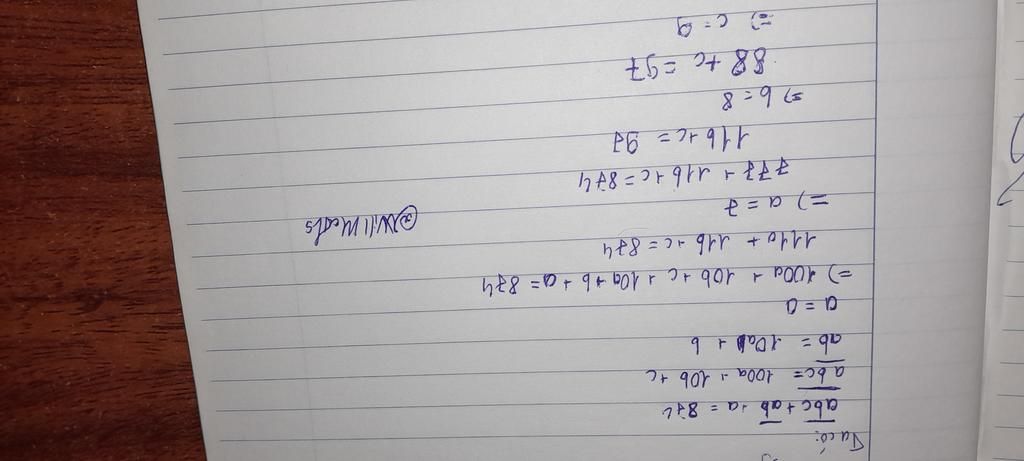 Ta có:
abc + ab + a = 874
abc = 100a + 10b + c
ab = 10a + b
a = a
=) 100a + 10b + c + 10a + b + a = 874
111a + 11b + c = 874
=) a = 7
@Will Meats
777 + 11b + c = 874
11b + c = 97
=) b = 8
88 + c = 97
=) c = 9